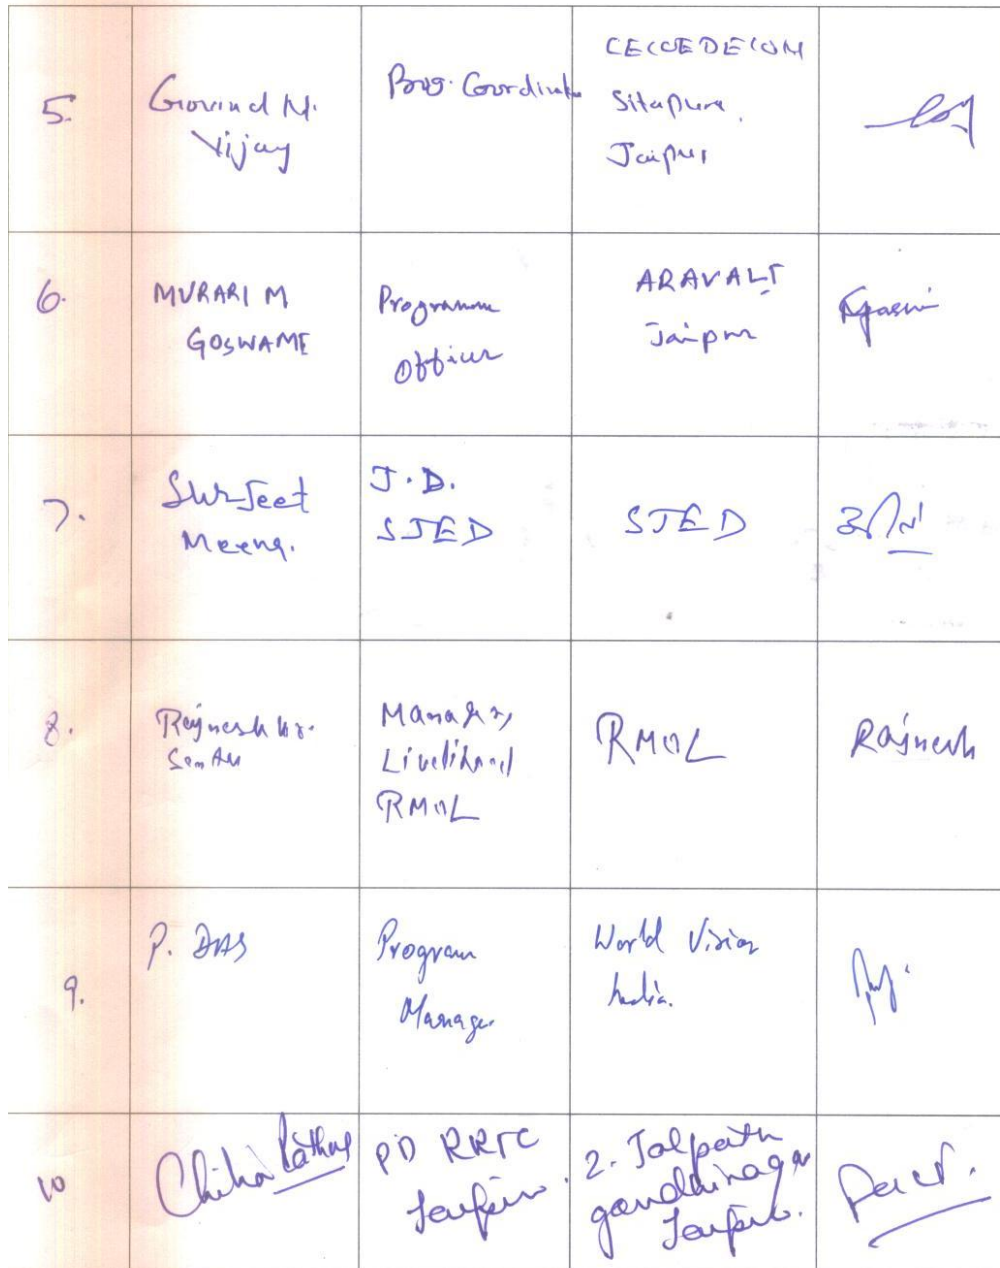 5.
Govind N.
Vijay
Prog. Coordinator
CECOEDECON
Sitapura,
Jaipur
6.
MURARI M
GOSWAME
Programme
Officer
ARAVALI
Jaipur
7.
Surjeet
Meena.
J.D.
SJED
SJED
8.
Rajnesh kr.
Manager,
Livelihood
RMOL
RMOL
Rajnesh
9.
P. DAS
Program
Manager
World Vision
India.
10
PD RRTC
Jaipur.
2. Jalpath
gandhinagar
Jaipur.